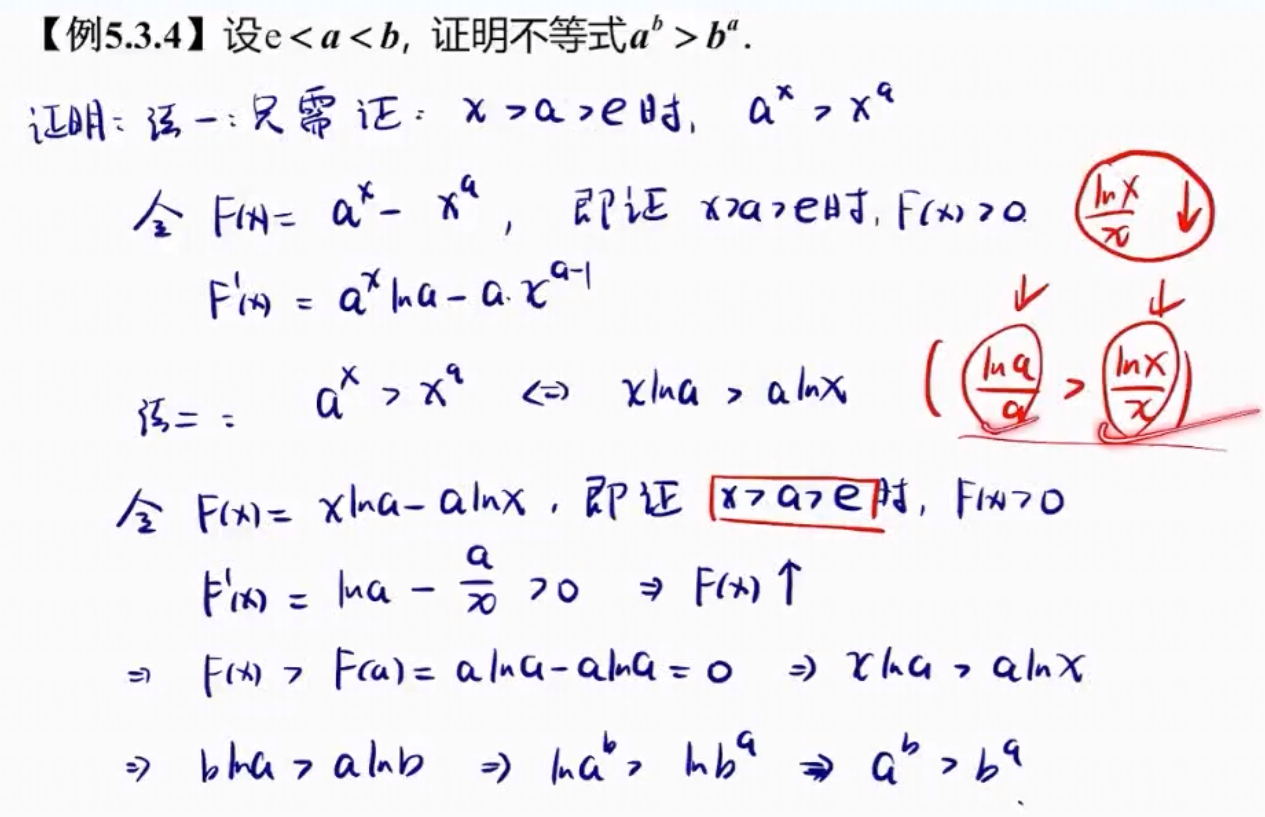 【例5.3.4】设e<a<b, 证明不等式a^b>b^a.
证明: 法一: 只需证: x>a>e时, a^x>x^a
令 F(x)= a^x - x^a, 即证 x>a>e时, F(x)>0
lnx/x ↓
F'(x) = a^x lna - a·x^(a-1)
↓ ↓
法二: a^x > x^a ⇔ xlna > alnx (lna/a > lnx/x)
令 F(x)= xlna-alnx, 即证 x>a>e时, F(x)>0
F'(x) = lna - a/x >0 ⇒ F(x)↑
⇒ F(x) > F(a)= alna-alna=0 ⇒ xlna>alnx
⇒ blna>alnb ⇒ lna^b> lnb^a ⇒ a^b>b^a.